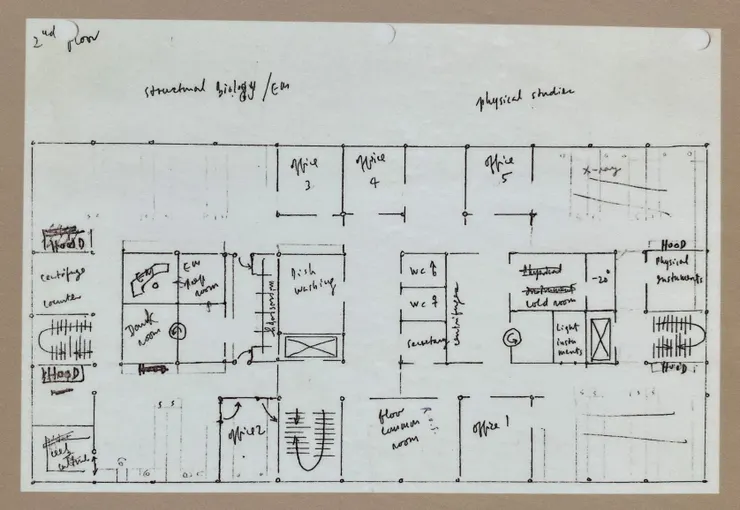 2nd floor
structural Biology / EM
physical studies
office
3
office
4
office
5
x-ray
HOOD
centrifuge
counter
EM
EM
prep
room
Dish
washing
WC
WC
secretary
centrifuges
cold room
-20°
HOOD
Physical
Instruments
Dark
room
Light
instru
ments
HOOD
HOOD
office 2
floor
common
room
office 1